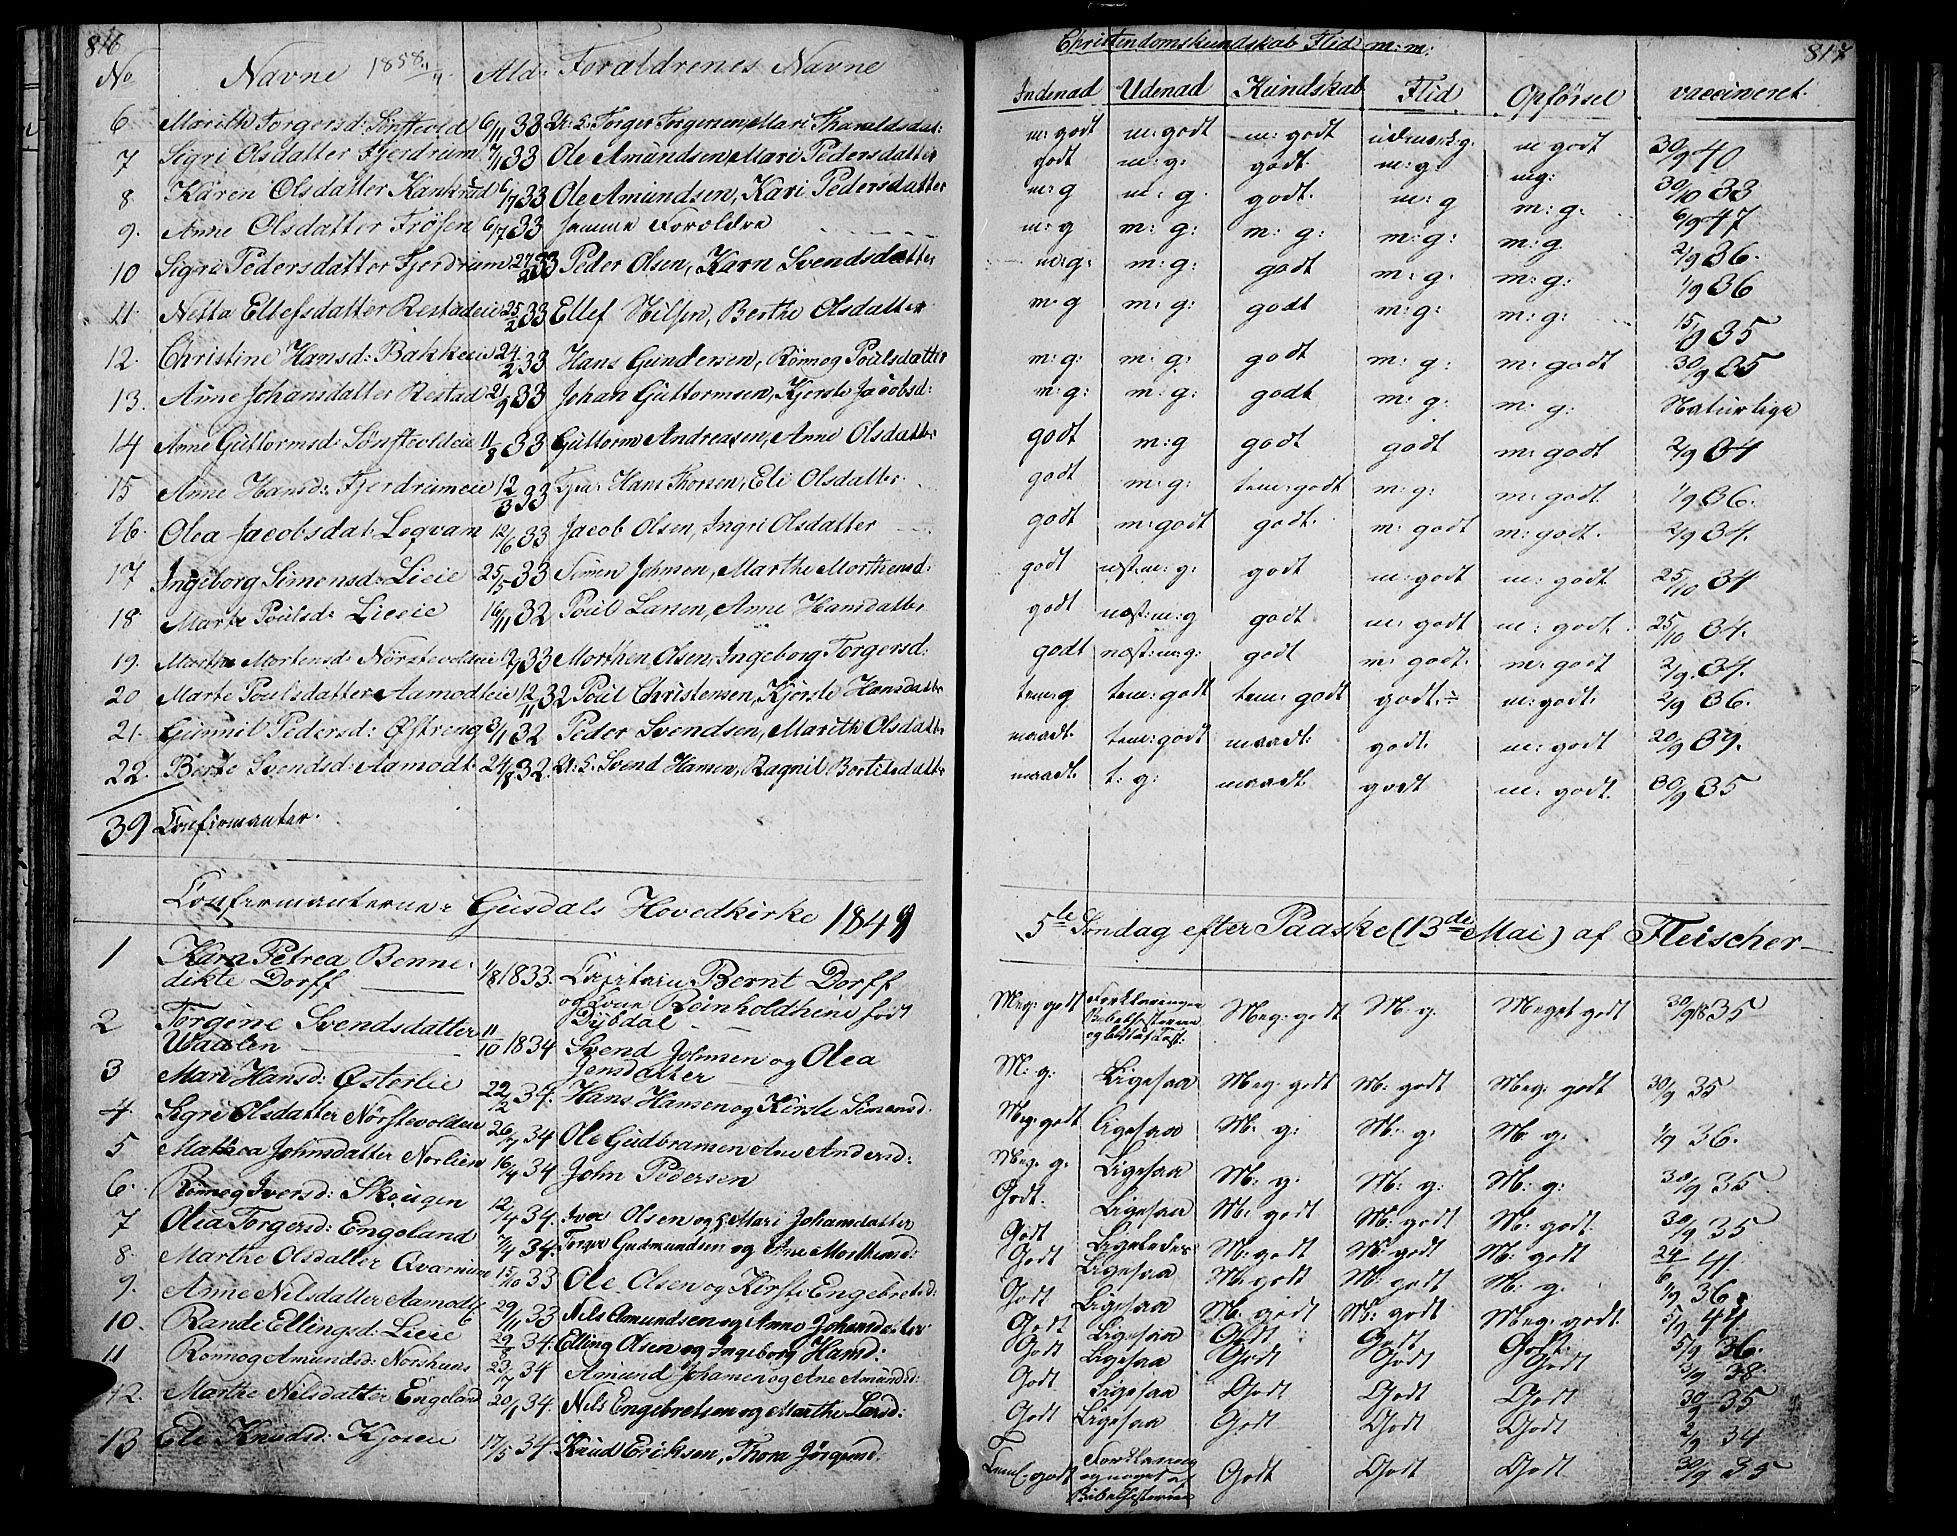 816
No Navne 1858 Ald: Forældrenes Navne
6 Marith Torgersd: 6/11 33 U: S: Torger Torgersen, Mari Tharaldsdat:
7 Sigri Olsdatter Fjerdrum 7/11 33 Ole Amundsen, Mari Pedersdatter
8 Karen Olsdatter Kankrud 6/7 33 Ole Amundsen, Kari Pedersdatter
9. Anne Olsdatter Frösen 6/7 33 Samme Forældre
10 Sigri Pedersdatter Fjerdrum 27/2 33 Peder Olsen, Karn Svendsdatter
11 Netta Ellefsdatter Restadeie 25/2 33 Ellef Nilsen, Berthe Olsdatter
12. Christine Hansd: Bakkeie 24/2 33 Hans Gundersen, Rönnog Poulsdatter
13. Anne Johansdatter Restad 21/9 33 Johan Guttormsen, Kjersti Jacobsd:
14 Anne Guttormsd: 11/8 33 Guttorm Andreasen, Anne Olsdatter
15 Anne Hansd: Fjerdrumeie 12/3 33 Hans Thorsen, Eli Olsdatter
16. Olea Jacobsdat: Legvam 12/6 33 Jacob Olsen, Ingri Olsdatter
17 Ingeborg Simensd: Lieie 25/5 33 Simen Johnsen, Marthe Morthensd:
18 Marte Poulsd: Lieeie 16/11 32 Poul Larsen, Anne Hansdatter
19. Marthe Mortensd: Nörstevoldeie 12/7 33 Morthen Olsen, Ingeborg Torgersd:
20 Marte Poulsdatter Aamodteie 12/11 32 Poul Christensen, Kjersti Hansdatter
21. Gunnil Pedersd: Östreng 3/1 32 Peder Svendsen, Marith Olsdatter
22. Berte Svendsd: Aamodt 24/8 32. U: S. Svend Hansen, Ragnil Bertilsdatter
39 Confirmanter.
Confirmanterne i Gusdals Hovedkirke 1849
1 Karn Petrea Benne-
dikte Dorff 1/8 1833. Capitain Bernt Dorff
og Reinholdhine født
Dybdal
2 Torgine Svendsdatter
Waalen 11/10 1834 Svend Johnsen og Olea
Jensdatter
3 Mari Hansd: Österlie 22/2 34. Hans Hansen og Kirsti Simensd.
4. Sigri Olsdatter Nörstevoldeie 26/7 34 Ole Gudbransen Ane Andersd:
5 Mathea Johnsdatter Norlien 16/4 34 John Pedersen
6. Rönnog Iversd: Skougen 12/4 34. Iver Olsen og Mari Johansdatter
7 Olea Torgersd: Engeland 7/4 34. Torger Gudmundsen og Ane Morthensd:
8 Marthe Olsdatter Qvarnune 15/10 33 Ole Olsen og Kirsti Engebretsd:
9. Anne Nilsdatter Aamodt 29/11 33 Nils Amundsen og Anne Johansdatter
10. Randi Ellingsd: Lieie 29/8 34. Elling Olsen og Ingeborg Hansd:
11 Rönnog Amundsd: Norshuus 23/7 34 Amund Johansen og Ane Amundsd:
12. Marthe Nilsdatter Engeland 20/1 34. Nils Engebretsen og Marthe Larsd:
13 Eli Knudsd: Kjoseie 17/5 34. Knud Eriksen, Thora Jörgensd.
Christendomskundskab Flid m: m: 817
Indenad Udenad Kundskab Flid Opförsel vaccineret
m: godt m: godt m: godt udmærk:g. m godt 30/9 40
godt m: g: godt m: g: mg: 30/10 33
m: g m: g godt. m: g m: g: 6/9 47
m: g m: g: m: g: m: g: m: g. 2/9 36.
m: g: m: g: godt m: g: m: g: 1/9 36
m: g m: g: godt m: g: m: g: 15/8 35
m: g: m: g: godt m: g: m: godt 30/9 35
m: g: m: g: godt m: g: m: g: Naturlige
godt m: g godt godt m: godt 2/9 34
godt m: g: tem: godt m: g: m: godt 1/9 36.
godt m: godt godt. m: godt m: godt. 2/9 34.
godt næst: m: g: godt m: godt m: godt 25/10 34
godt næst: m: g godt m: godt m: godt. 25/10 34.
godt næst: m: g: godt m: godt. m: godt 2/9. 34.
tem: g tem: godt tem: godt godt. m: godt. 2/9 36.
maadt. tem: godt maadt. godt. m: godt 20/9 39.
maadt. t: g: maadt. godt m: godt. 30/9 35
5te Søndag efter Paaske (13de Mai) af Fleischer
Meg: godt Forklaringen
Bibelhistorien
Meg: godt M: g: Meget godt 30/9 1835
M: g: Ligesaa Meg: godt M: godt Meg: godt 30/9 35
Meg: godt Ligesaa M: g: M: g: M: g: 1/9 36.
Meg: g: Ligesaa M: g: M: g: M: g: 30/9 35
Godt. Ligesaa M: godt M: godt M: godt. 30/9 35
Godt Ligeledes M: godt M: godt M: godt 24/8 41.
Godt Ligesaa M: godt M: godt M: g. 1/9 36.
Godt Ligesaa M: godt M: godt Meg: godt. 5/9 44
Godt Ligesaa Godt Godt. Godt. 5/9 36.
Godt Ligesaa Godt Godt Godt 3/9 38.
Godt Ligesaa Godt Godt Godt 30/9 35
Godt Ligesaa Godt Godt Godt 2/9 34
Teml. godt Forklaring
og noget af
Bibelhistorien Godt Godt Godt 30/9 35